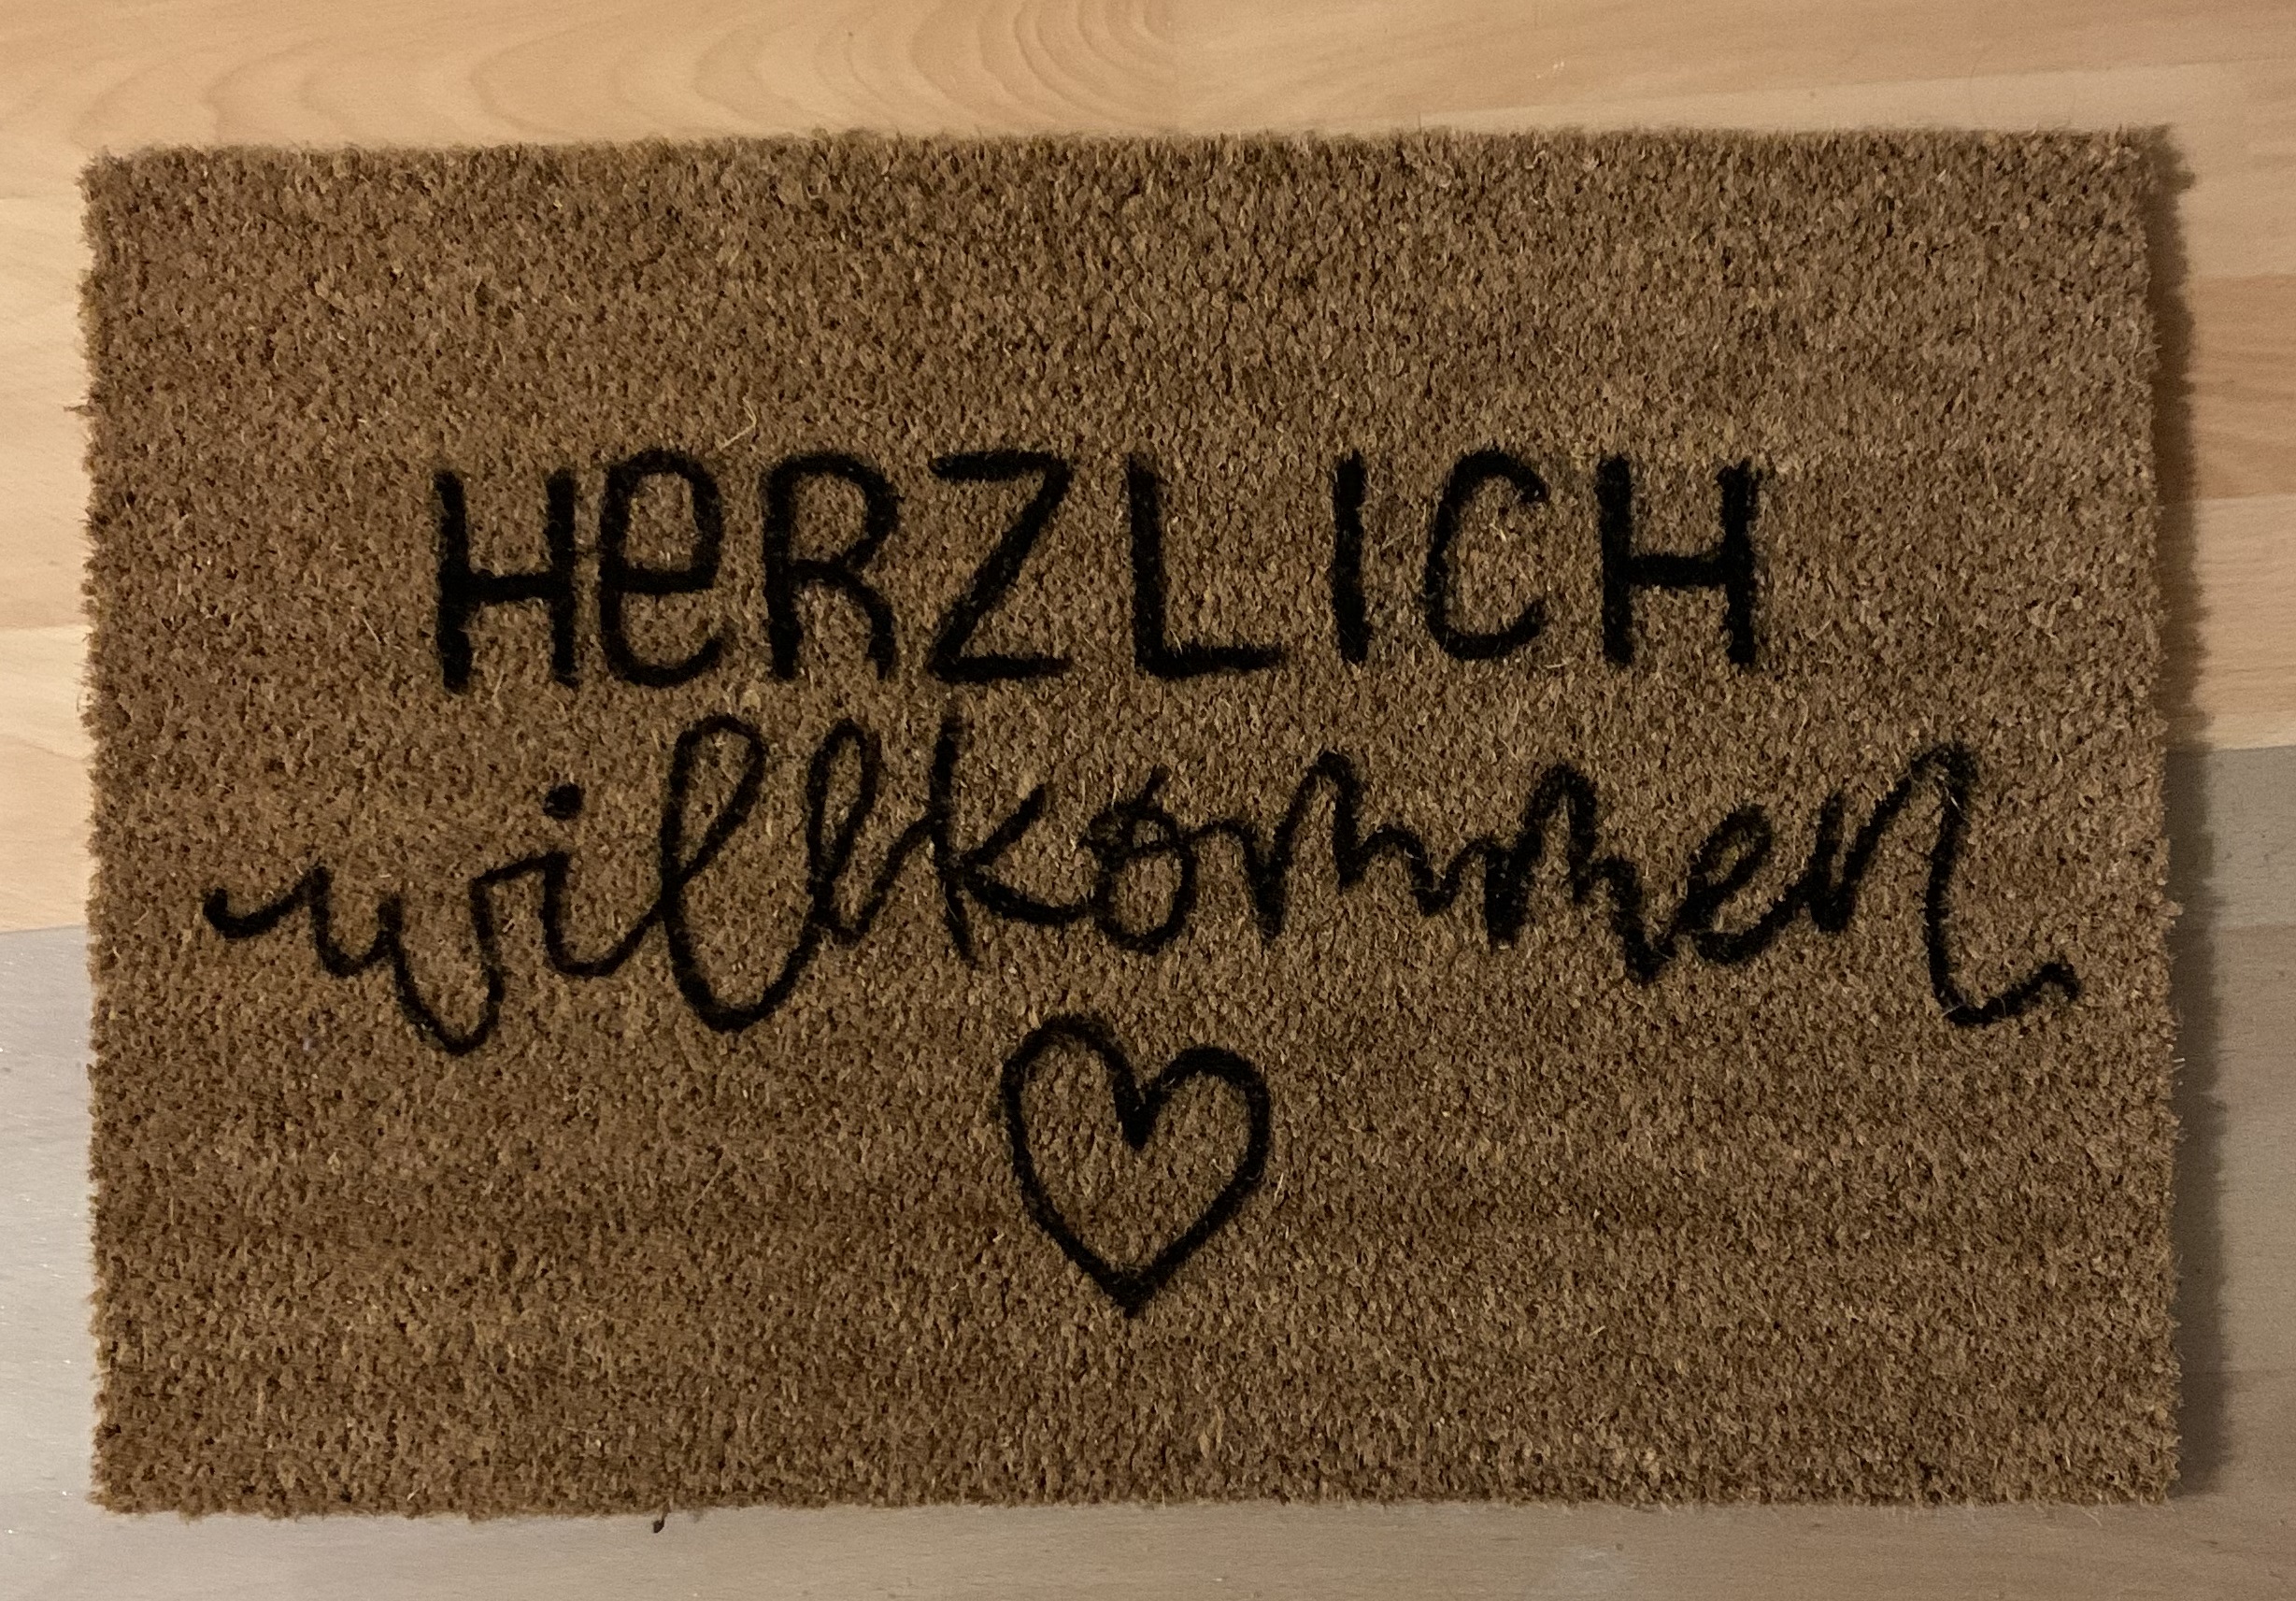 HeRZLICH
willkommen